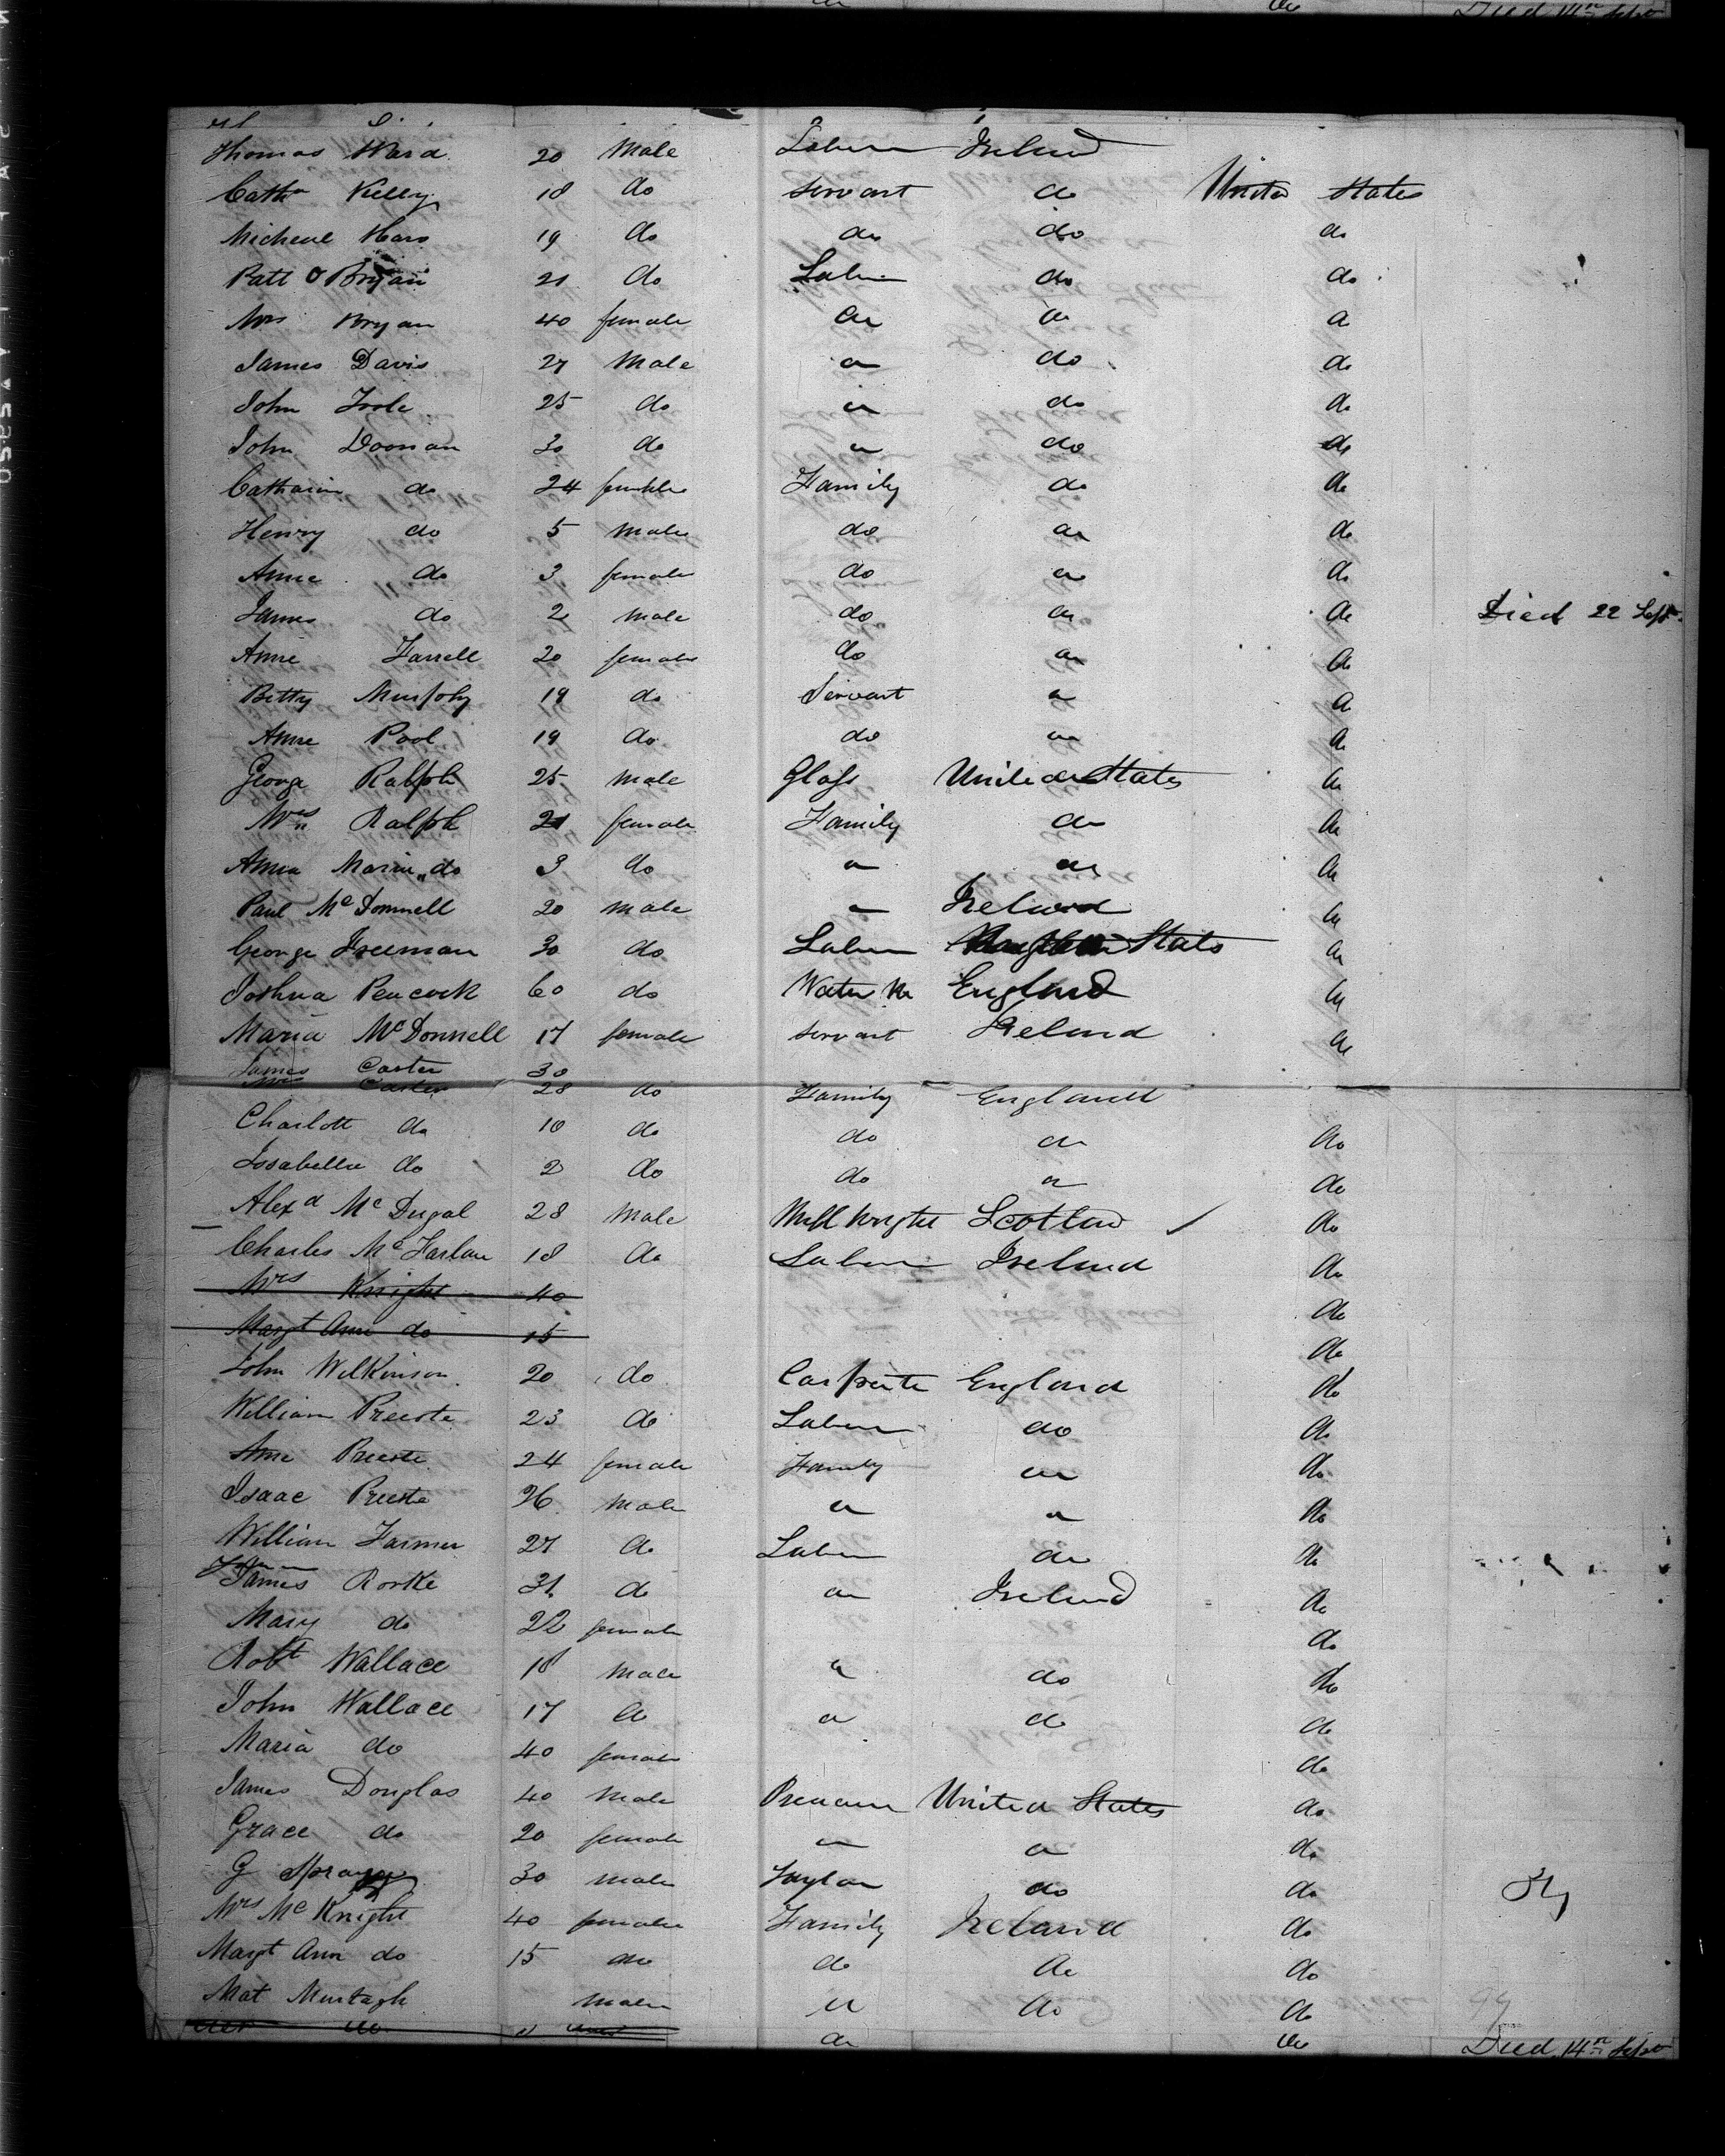 do Died 14th Sept
Thomas Ward 20 Male Labur Ireland
Cathn Kelly 18 do Servant do United States
Micheal Hars 19 do do do do
Patt O Bryan 21 do Labur do do
Mrs Bryan 40 female do do do
James Davis 27 Male do do do
John Toole 25 do do do do
John Doonan 30 do do do do
Catharin do 24 female Family do do
Henry do 5 Male do do do
Anne do 3 female do do do
James do 2 male do do do Died 22 Sept.
Anne Farrell 20 female do do do
Betty Murphy 19 do Servant do do
Anne Pool 19 do do do do
George Ralph 25 Male Glass United States do
Mrs Ralph 21 female Family do do
Anna Maria do 3 do do do do
Paul McDonnell 20 male do Ireland do
George Freeman 30 do Labur States do
Joshua Peacock 60 do England do
Maria McDonnell 17 female servant Ireland do
James Carter 30
Mrs Carter 28 do Family England
Charlott do 10 do do do do
Issabella do 2 do do do do
Alexd McDugal 28 Male Mill wright Scotland do
Charles McFarlan 18 do Labur Ireland do
Mrs Knight 40 do
Margt Ann do 15 do
John Wilkinson 20 do Carpente England do
William Preeste 23 do Labur do do
Ane Preeste 24 female Family do do
Isaac Preeste 26 Male do do do
William Farmer 27 do Labur do do
James Rorke 31 do do Ireland do
Mary do 22 female do
Robt Wallace 18 Male do do do
John Wallace 17 do do do do
Maria do 40 female do
James Douglas 40 Male United States do
Grace do 20 female do do do
G Spragg 30 male Taylor do do
Mrs McKnight 40 female Family Ireland do
Margt Ann do 15 do do do do
Mat Murtagh Male do do do
do do do do Died 14th Sept